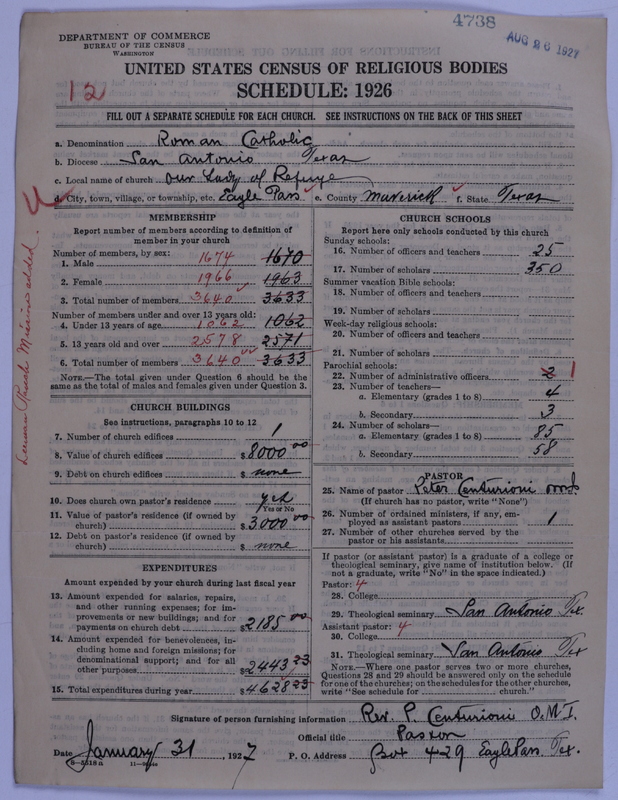 4738
AUG 26 1927
DEPARTMENT OF COMMERCE
BUREAU OF THE CENSUS
WASHINGTON
UNITED STATES CENSUS OF RELIGIOUS BODIES
12
SCHEDULE: 1926
FILL OUT A SEPARATE SCHEDULE FOR EACH CHURCH. SEE INSTRUCTIONS ON THE BACK OF THIS SHEET
a. Denomination Roman Catholic
b. Diocese San Antonio Texas
c. Local name of church Our Lady of Refuge
d. City, town, village, or township, etc. Eagle Pass e. County Maverick f. State Texas
MEMBERSHIP
Report number of members according to definition of
member in your church
Number of members, by sex:
1. Male 1674 1670
2. Female 1966 1963
3. Total number of members 3640 3633
Number of members under and over 13 years old:
4. Under 13 years of age 1062 1062
5. 13 years old and over 2578 2571
6. Total number of members 3640 3633
NOTE.—The total given under Question 6 should be the
same as the total of males and females given under Question 3.
CHURCH BUILDINGS
See instructions, paragraphs 10 to 12
7. Number of church edifices 1
8. Value of church edifices $8000 00
9. Debt on church edifices $ none
10. Does church own pastor's residence yes
Yes or No
11. Value of pastor's residence (if owned by
church) $3000 00
12. Debt on pastor's residence (if owned by
church) $ none
EXPENDITURES
Amount expended by your church during last fiscal year
13. Amount expended for salaries, repairs,
and other running expenses; for im-
provements or new buildings; and for
payments on church debt $2185 00
14. Amount expended for benevolences, in-
cluding home and foreign missions; for
denominational support; and for all
other purposes $2443 23
15. Total expenditures during year $4628 23
CHURCH SCHOOLS
Report here only schools conducted by this church
Sunday schools:
16. Number of officers and teachers 25
17. Number of scholars 350
Summer vacation Bible schools:
18. Number of officers and teachers
19. Number of scholars
Week-day religious schools:
20. Number of officers and teachers
21. Number of scholars
Parochial schools:
22. Number of administrative officers 2 1
23. Number of teachers—
a. Elementary (grades 1 to 8) 4
b. Secondary 3
24. Number of scholars—
a. Elementary (grades 1 to 8) 85
b. Secondary 58
PASTOR
25. Name of pastor Peter Centurioni
(If church has no pastor, write "None")
26. Number of ordained ministers, if any, em-
ployed as assistant pastors 1
27. Number of other churches served by the
pastor or his assistants
If pastor (or assistant pastor) is a graduate of a college or
theological seminary, give name of institution below. (If
not a graduate, write "No" in the space indicated.)
Pastor: 4
28. College
29. Theological seminary San Antonio Tex
Assistant pastor: 4
30. College
31. Theological seminary San Antonio Tex
NOTE.—Where one pastor serves two or more churches,
Questions 28 and 29 should be answered only on the schedule
for one of the churches; on the schedules for the other churches,
write "See schedule for church."
Signature of person furnishing information Rev. P. Centurioni O.M.I.
Official title Pastor
Date January 31, 1927 P. O. Address Box 429 Eagle Pass, Tex.
Mission added.